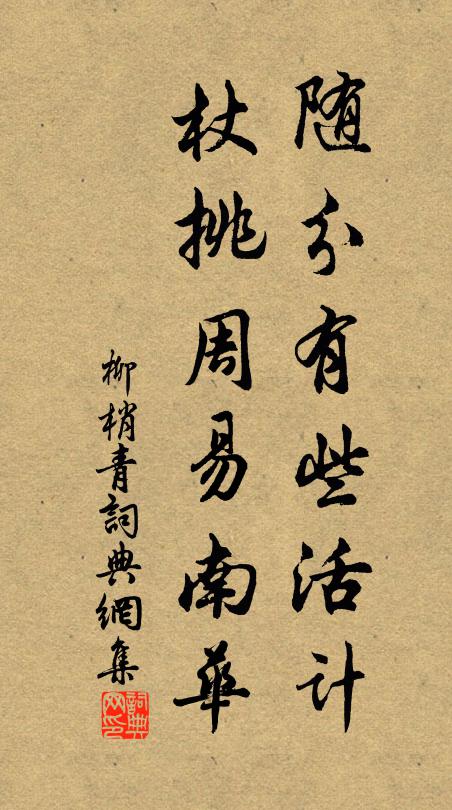 随分有些活计
杖挑周易南华
柳梢青詞典網集
詞典网印